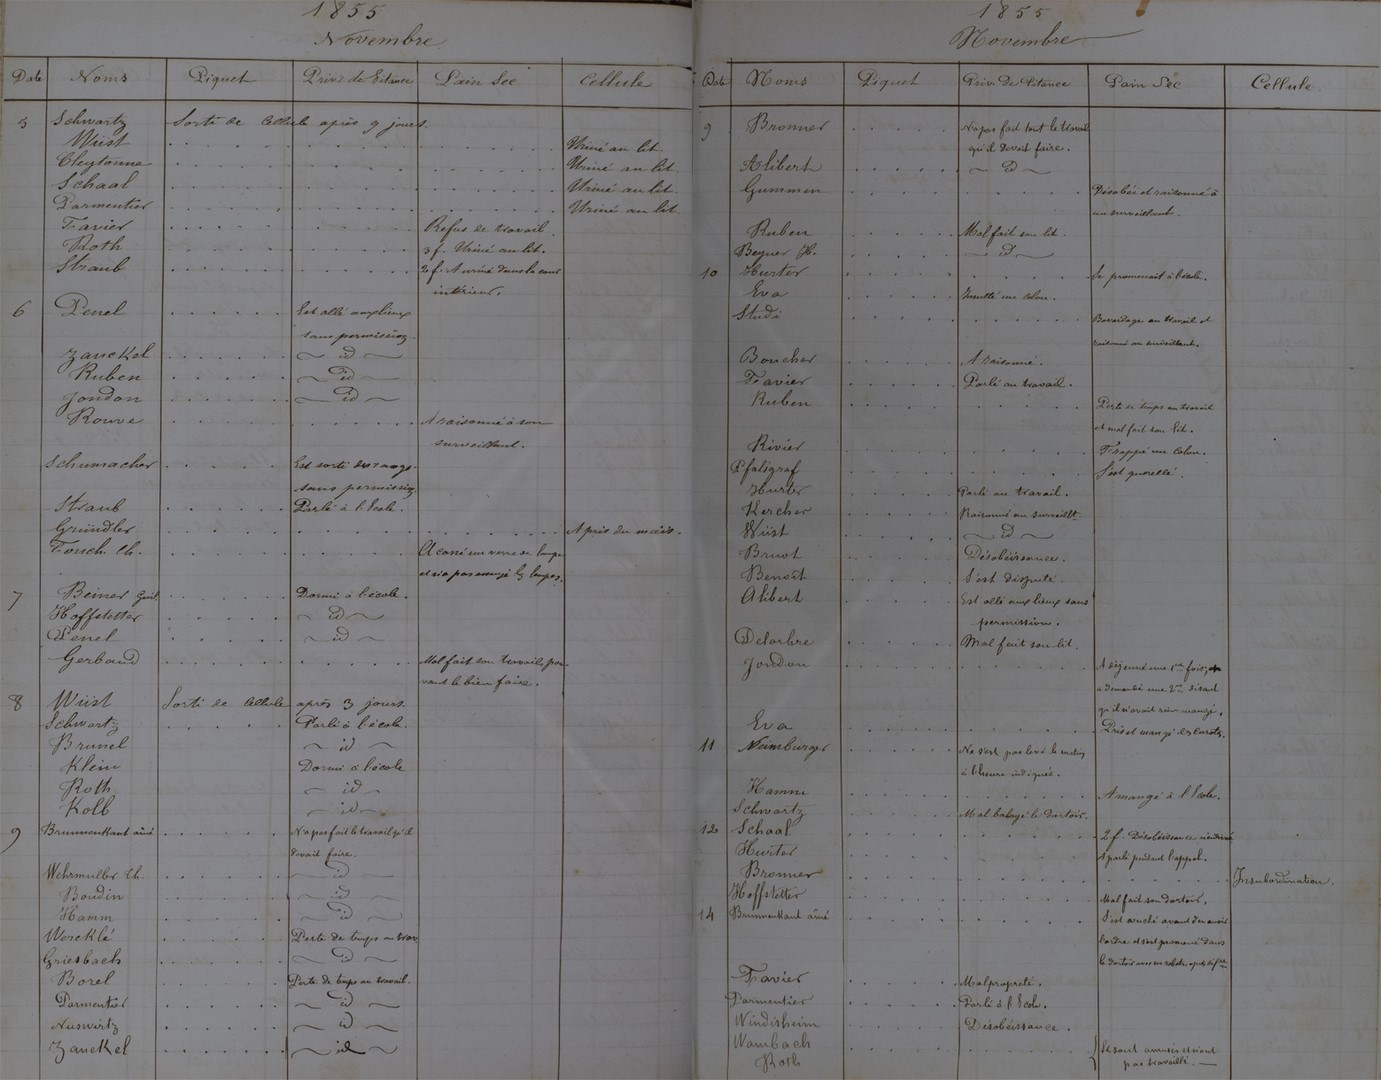 1855
Novembre
Date Noms Piquet Privé de Pitance Pain Sec Cellule
5 Schwartz Sorti de Cellule après 9 jours.
Wüst Uriné au lit.
Cleytonne Uriné au lit.
Schaal Uriné au lit.
Parmentier Uriné au lit.
Favier Refus de travail.
Roth 3 f. Uriné au lit.
Straub 2 f. A uriné dans la cour
intérieur.
6 Penel Est allé aux lieux
sans permission
Zanekel id
Ruben id
Jondon id
Rouve A raisonné à son
surveillant.
Schumacher Est sorti des rangs
sans permission
Straub Parlé à l'école.
Gründler A pris du maïs.
Fouch. Ch. A cassé un verre de lampe
et n'a pas arrangé les lampes.
7 Beiner Guil. Dormi à l'école.
Hoffstetter id
Penel id
Gerbaud Mal fait son travail, pou
vant le bien faire.
8 Wüst Sorti de Cellule après 3 jours.
Schwartz Parlé à l'école.
Brunel id
Klein Dormi à l'école
Roth id
Kolb id
9 Brunnenkant aîné N'a pas fait le travail qu'il
devait faire.
Wehrmuller Ch. id
Boudin id
Hamm id
Wercklé Perte de temps au trav
Griesbach id
Borel Perte de temps au travail.
Parmentier id
Nuswitz id
Zanekel id
1855
Novembre
Date Noms Piquet Privé de Pitance Pain Sec Cellule
9 Bronner N'a pas fait tout le travail
qu'il devait faire.
Alibert id
Gummen Désobéi et raisonné à
un surveillant.
Ruben Mal fait son lit.
Beyner H. id
10 Hurter Se promenait à l'école.
Eva Insulté un colon.
Studi Bavardage au travail et
raisonné au surveillant.
Boucher A raisonné.
Favier Parlé au travail.
Ruben Perte de temps au travail
et mal fait son lit.
Rivier Frappé un Colon.
Pfalsgraf S'est querellé.
Hurter Parlé au travail.
Kercher Raisonné au surveillt
Wüst id
Bruot Désobéissance.
Benoît S'est disputé.
Alibert Est allé aux lieux sans
permission.
Delarbre Mal fait son lit.
Jondon A déjeuné une 1ère fois, et
a demandé une 2me disant
qu'il n'avait rien mangé.
Eva Pris et mangé des carots.
11 Neimburger Ne s'est pas levé le matin
à l'heure indiquée.
Hamm A mangé à l'école.
Schwartz Mal balayé le dortoir.
12 Schaal 2 f. Désobéissance
Hurter A parlé pendant l'appel.
Bronner Insubordination.
Hoffstetter Mal fait son dortoir.
14 Brunnenkant aîné S'est couché avant d'en avoir
l'ordre et s'est promené dans
le dortoir
Favier Malpropreté.
Parmentier Parlé à l'école.
Windisheim Désobéissance.
Wambach Se sont amusés et n'ont
Roth pas travaillé.